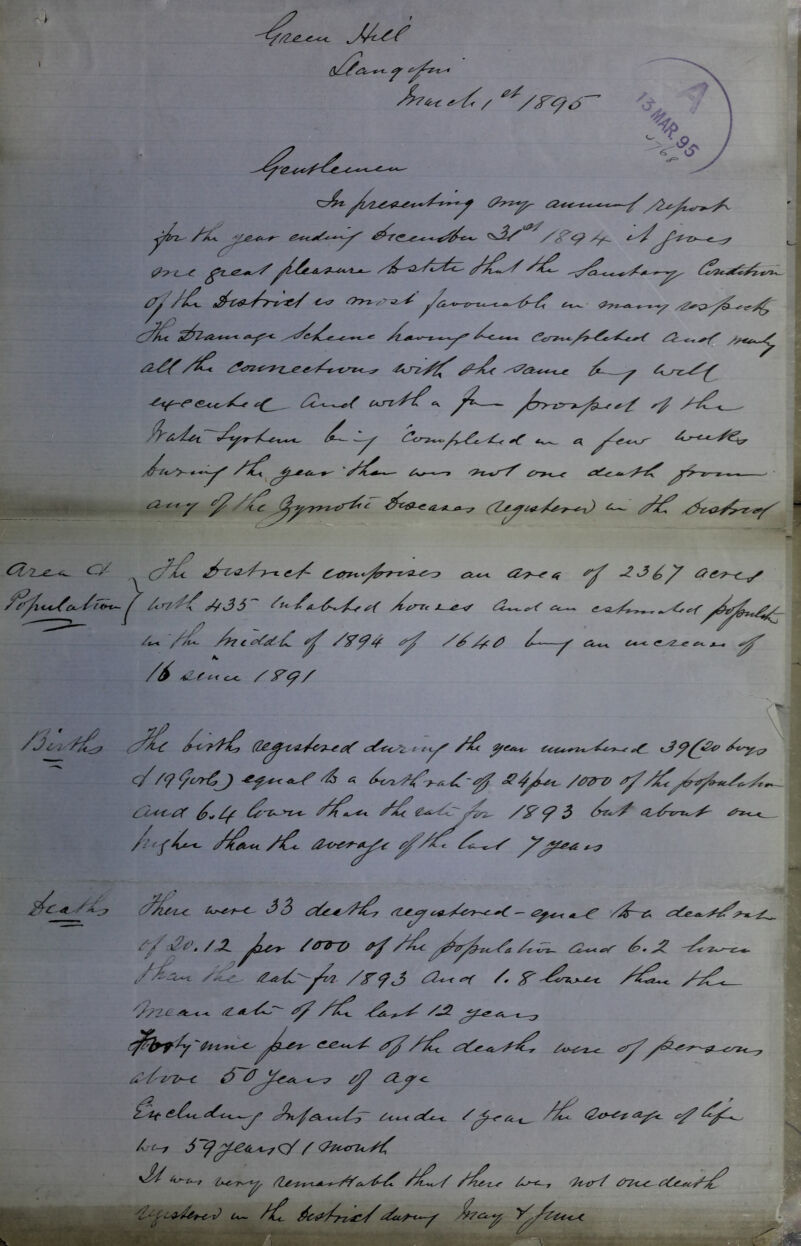 Green Hill
Llangefni
March 1st 1895
A
13 MAR. 95
Gentlemen
In presenting my annual report
for the year ending December 31st 1894 it gives
me great pleasure to state that the Sanitary Condition
of the District is most favourable in many respects
The Drainage Scheme having been completed and nearly
all the connections with the same being well
executed and with a fair prospect of the
Water System being completed in a few weeks
During the year there was not one death from
any of the Zymotic Diseases registered in the District
Area &
Population
The District comprises an area of 2367 acres
with 435 inhabited houses and an estimated populatn
in the Middle of 1894 of 1640 being an increase of
16 since 1891
Births
The births registered during the year numbered 39 (20 boys
& 19 Girls) equal to a birth rate of 24 per 1000 of the population
and 6.4 lower than the rate for 1893 but about one
higher than the average of the last 7 years
Deaths
There were 33 deaths registered - equal to a death rate
of 20.12 per 1000 of the population and 6.2 lower
than the rate for 1893 and 1.8 lower than the
mean rate of the last 12 years
Forty nine per cent of the deaths were of persons
above 50 years of age
Excluding Infants under 1 year the average of life
was 59 years & 1 month
It was very remarkable that there was not one death
registered in the District during May & June